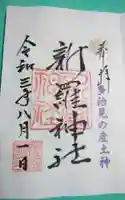 奉拝
多治見の産土神
新羅神社
令和三年八月一日